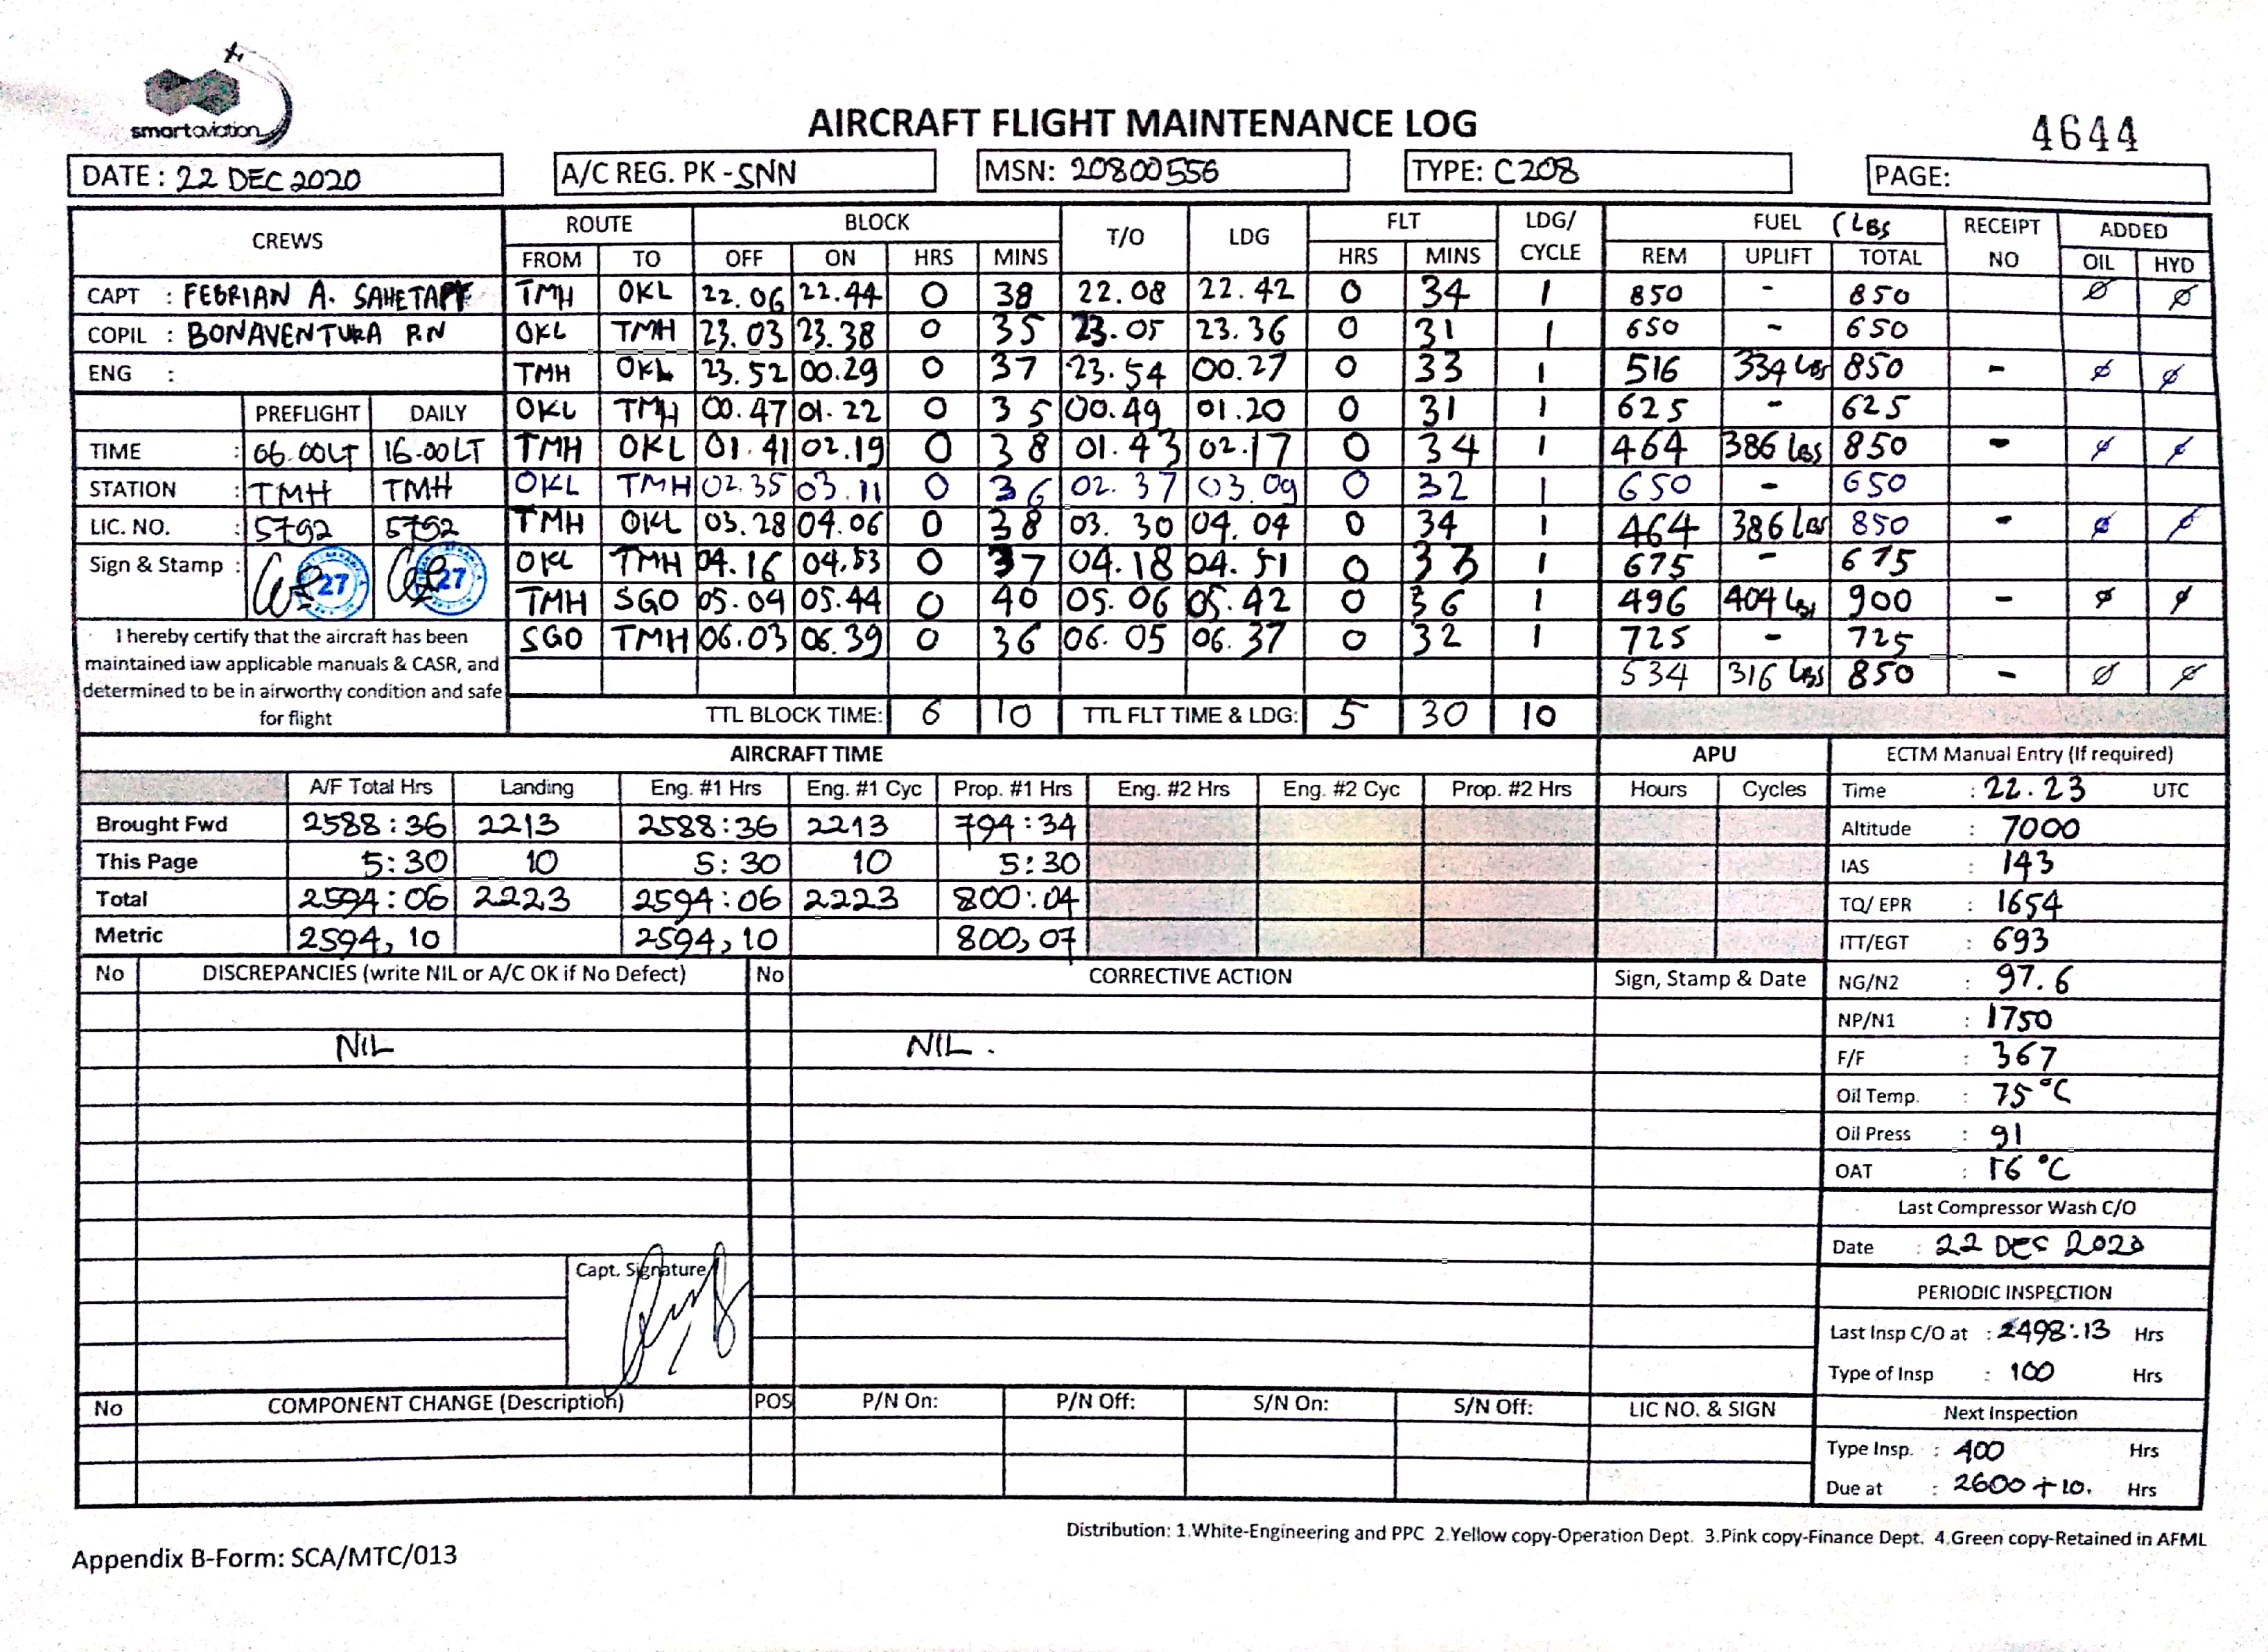 smartaviation
AIRCRAFT FLIGHT MAINTENANCE LOG
4644
DATE: 22 DEC 2020 A/C REG. PK-SNN MSN: 20800556 TYPE: C208 PAGE:
CREWS ROUTE BLOCK T/O LDG FLT LDG/ CYCLE FUEL (LBS RECEIPT NO ADDED
FROM TO OFF ON HRS MINS HRS MINS REM UPLIFT TOTAL OIL HYD
CAPT : FEBRIAN A. SAHETAPY TMH OKL 22.06 22.44 0 38 22.08 22.42 0 34 1 850 - 850 Ø Ø
COPIL : BONAVENTURA P.N OKL TMH 23.03 23.38 0 35 23.05 23.36 0 31 1 650 - 650
ENG : TMH OKL 23.52 00.29 0 37 23.54 00.27 0 33 1 516 334 LBS 850 - Ø Ø
PREFLIGHT DAILY OKL TMH 00.47 01.22 0 35 00.49 01.20 0 31 1 625 - 625
TIME : 06.00LT 16.00LT TMH OKL 01.41 02.19 0 38 01.43 02.17 0 34 1 464 386 LBS 850 - Ø Ø
STATION : TMH TMH OKL TMH 02.35 03.11 0 36 02.37 03.09 0 32 1 650 - 650
LIC. NO. : 5792 5792 TMH OKL 03.28 04.06 0 38 03.30 04.04 0 34 1 464 386 LBS 850 - Ø Ø
Sign & Stamp : 27 27 OKL TMH 04.16 04.53 0 37 04.18 04.51 0 33 1 675 - 675
TMH SGO 05.04 05.44 0 40 05.06 05.42 0 36 1 496 404 LBS 900 - Ø Ø
I hereby certify that the aircraft has been SGO TMH 06.03 06.39 0 36 06.05 06.37 0 32 1 725 - 725
maintained iaw applicable manuals & CASR, and
determined to be in airworthy condition and safe 534 316 LBS 850 - Ø Ø
for flight TTL BLOCK TIME: 6 10 TTL FLT TIME & LDG: 5 30 10
AIRCRAFT TIME APU ECTM Manual Entry (If required)
A/F Total Hrs Landing Eng. #1 Hrs Eng. #1 Cyc Prop. #1 Hrs Eng. #2 Hrs Eng. #2 Cyc Prop. #2 Hrs Hours Cycles Time : 22.23 UTC
Brought Fwd 2588:36 2213 2588:36 2213 794:34 Altitude : 7000
This Page 5:30 10 5:30 10 5:30 IAS : 143
Total 2594:06 2223 2594:06 2223 800:04 TQ/ EPR : 1654
Metric 2594,10 2594,10 800,07 ITT/EGT : 693
No DISCREPANCIES (write NIL or A/C OK if No Defect) No CORRECTIVE ACTION Sign, Stamp & Date NG/N2 : 97.6
NP/N1 : 1750
NIL NIL. F/F : 367
Oil Temp. : 75°C
Oil Press : 91
OAT : 16°C
Last Compressor Wash C/O
Date : 22 DEC 2020
Capt. Signature
PERIODIC INSPECTION
Last Insp C/O at : 2498:13 Hrs
Type of Insp : 100 Hrs
No COMPONENT CHANGE (Description) POS P/N On: P/N Off: S/N On: S/N Off: LIC NO. & SIGN Next Inspection
Type Insp. : 400 Hrs
Due at : 2600 +10. Hrs
Distribution: 1.White-Engineering and PPC 2.Yellow copy-Operation Dept. 3.Pink copy-Finance Dept. 4.Green copy-Retained in AFML
Appendix B-Form: SCA/MTC/013